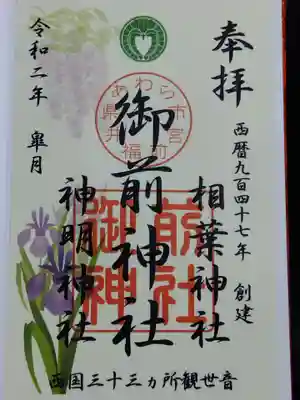 奉拝
西暦九百四十七年 創建
相葉神社
御前神社
神明神社
令和二年 皐月
西国三十三ヵ所観世音
あわら市宮前
福井県
御前神社